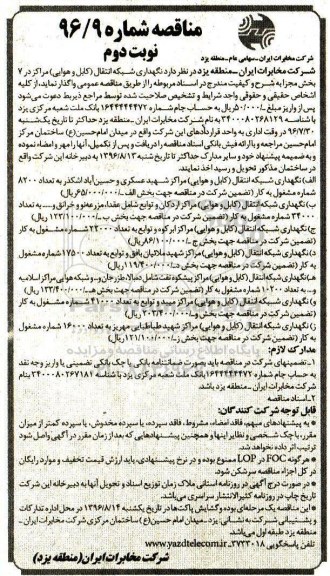 مناقصه شماره ۹۶/۹
نوبت دوم
شرکت مخابرات ایران -سهامی عام-منطقه یزد
شرکت مخابرات ایران -منطقه یزد در نظر دارد نگهداری شبکه انتقال (کابل و هوایی) مراکز در ۷
بخش مجزا به شرح و کیفیت مندرج در اسناد مربوطه را از طریق مناقصه عمومی واگذار نماید، از کلیه
اشخاص حقیقی و حقوقی واجد شرایط و تشخیص صلاحیت شده توسط مراجع ذیربط دعوت می‌شود
پس از واریز مبلغ ۵۰۰/۰۰۰ ریال به حساب جام شماره ۱۶۴۴۴۴۴۴۷۲ بانک ملت شعبه مرکزی یزد
با شناسه ۳۴۰۰۰۸۰۲۶۸۱۲۹ به نام شرکت مخابرات ایران - منطقه یزد حداکثر تا تاریخ یکشنبه
۹۶/۷/۳۰ در وقت اداری به واحد قراردادهای این شرکت واقع در میدان امام حسین(ع) ساختمان مرکز
امام حسین مراجعه و با ارائه فیش بانکی اسناد مناقصه را دریافت و پس از تکمیل، آنها را مهر و امضاء نموده
و به ضمیمه پیشنهاد خود و سایر مدارک حداکثر تا تاریخ شنبه ۱۳۹۶/۸/۱۳ به دبیرخانه این شرکت واقع
در ساختمان مذکور تحویل و رسید اخذ نمایند.
الف) نگهداری شبکه انتقال (کابل و هوایی) مراکز شهید عسکری و حسین‌آباد اشکذر به تعداد ۸۲۰۰
شماره مشغول به کار (تضمین شرکت در مناقصه جهت بخش الف ۶۵/۰۰۰/۰۰۰ ریال)
ب) نگهداری شبکه انتقال (کابل و هوایی) مراکز اردکان و توابع شامل عقدا، مزرعه‌نو و خرانق و... به تعداد
۳۴۰۰۰ شماره مشغول به کار (تضمین شرکت در مناقصه جهت بخش ب ۱۲۳/۱۰۰/۰۰۰ ریال)
ج) نگهداری شبکه انتقال (کابل و هوایی) مراکز ابرکوه و توابع به تعداد ۲۲۰۰۰ شماره مشغول به کار
(تضمین شرکت در مناقصه جهت بخش ج ۸۶/۱۰۰/۰۰۰ ریال)
د) نگهداری شبکه انتقال (کابل و هوایی) مراکز شهید ملائیان بافق و توابع به تعداد ۱۷۵۰۰ شماره مشغول
به کار (تضمین شرکت در مناقصه جهت بخش د ۱۱۹/۴۰۰/۰۰۰ ریال)
هـ) نگهداری شبکه انتقال (کابل و هوایی) مراکز
به تعداد ۱۰۲۰۰ شماره مشغول به کار (تضمین شرکت در مناقصه جهت بخش هـ ۱۳۳/۴۰۰/۰۰۰ ریال)
و) نگهداری شبکه انتقال (کابل و هوایی) مراکز میبد و توابع به تعداد ۴۱۰۰۰ شماره مشغول به کار
(تضمین شرکت در مناقصه جهت بخش و ۲۰۲/۴۰۰/۰۰۰ ریال)
ز) نگهداری شبکه انتقال (کابل و هوایی) مراکز شهید طباطبایی مهریز به تعداد ۱۶۰۰۰ شماره مشغول
به کار (تضمین شرکت در مناقصه جهت بخش ز ۱۲۱/۱۰۰/۰۰۰ ریال)
مدارک لازم:
۱-تضمین‌های شرکت در مناقصه باید بصورت ضمانتنامه بانکی یا چک بانکی تضمینی یا واریز وجه نقد
به حساب جام شماره ۱۶۴۴۴۴۴۴۷۲ بانک ملت شعبه مرکزی یزد با شناسه ۳۴۰۰۰۸۰۲۶۷۱۸۱ بنام
شرکت مخابرات ایران - منطقه یزد باشد.
۲-اسناد مناقصه
قابل توجه شرکت کنندگان:
* به پیشنهادهای مبهم، فاقد امضاء، مشروط، فاقد سپرده، یا سپرده مخدوش، یا سپرده کمتر از میزان
مقرر، یا چک شخصی و نظایر اینها و همچنین پیشنهادهایی که بعد از زمان مقرر در آگهی واصل شود
ترتیب اثر داده نخواهد شد.
* هرگونه FOC در LOP ممنوع بوده و در نرخ پیشنهادی، باید ارزش قیمت تخفیف و موارد رایگان
در کل اجزاء مناقصه سرشکن شود.
* در صورت درج آگهی در روزنامه استانی ملاک زمان توزیع اسناد و تحویل آنها به دبیرخانه این شرکت
تاریخ چاپ در روزنامه کثیرالانتشار سراسری می‌باشد.
* این مناقصه یک مرحله‌ای بوده و گشایش پاکت‌ها در تاریخ یکشنبه ۱۳۹۶/۸/۱۴ در محل اداره تدارکات
و پشتیبانی شرکت به نشانی یزد -میدان امام حسین (ع) ساختمان مرکزی شرکت مخابرات ایران -
منطقه یزد طبقه اول می‌باشد.
تلفن پاسخگویی ۳۷۲۳۰۱۸ www.yazdtelecom.ir
شرکت مخابرات ایران (منطقه یزد)